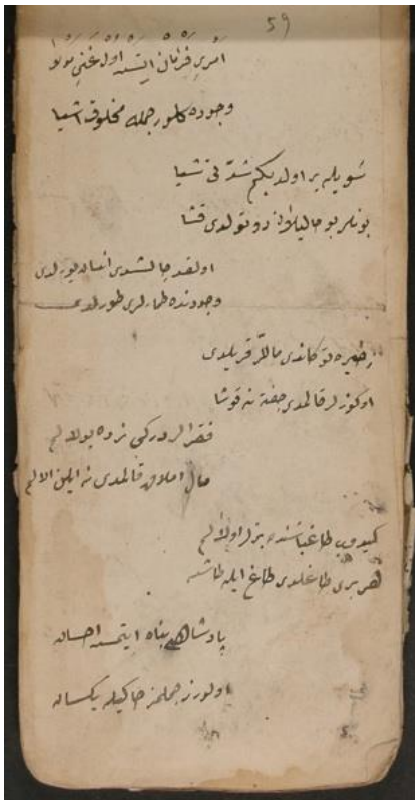 59
امر و فرمان ایتسه اول غنی مولا
وجوده کلور جمله مخلوق اشیا
شویله بر اولدیکم شدتی شتا
بونلر بو حالیله دوتولدی قشا
اولقدر چالشدی انسان یورلدی
وجودنده طمارلری طورلدی
زخیره توکاندی ماللر قریلدی
اوکوزلر قالمدی جفته نه قوشا
فقرالر دركه نزده بولالم
مال املاق قالمدی نه ایلن الالم
کیدوب طاغ باشنده بزلر اولالم
هر بری طاغلدی طاغ ایله طاشه
پادشاهم بناه ایتمسه احسان
اولورز جملمز خاکیله یکسان